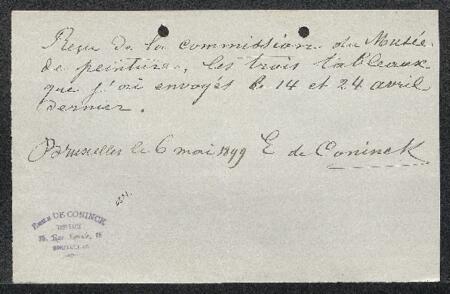 Reçu de la commission du Musée
de peinture, les trois tableaux
que j'ai envoyés le 14 et 24 avril
dernier.
Bruxelles le 6 mai 1899 E de Coninck
DE CONINCK
BRUXELLES